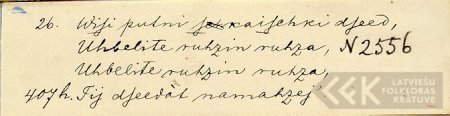 26. Wisi putni skaischki dseed,
Uhbelite ruhzin ruhza, N2556
Uhbelite ruhzin ruhza,
407h. Tij dseedàt namahzej.
LATVIEŠU
FOLKLORAS
KRĀTUVE